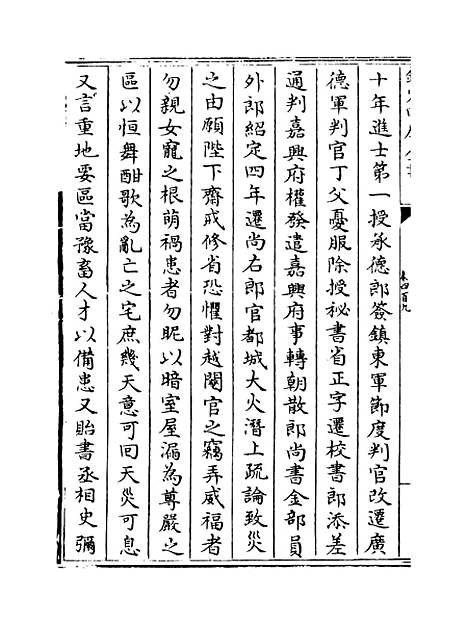 十年進士第一授承德郎簽鎮東軍節度判官改遷廣
德軍判官丁父憂服除授秘書省正字遷校書郎添差
通判嘉興府權發遣嘉興府事轉朝散郎尚書金部員
外郎紹定四年遷尚右郎官都城大火潛上疏論致災
之由願陛下齋戒修省恐懼對越閹官之竊弄威福者
勿親女寵之根萌禍患者勿昵以暗室屋漏為尊嚴之
區以恒舞酣歌為亂亡之宅庶幾天意可回天災可息
又言重地要區當豫畜人才以備患又貽書丞相史彌
卷四百九